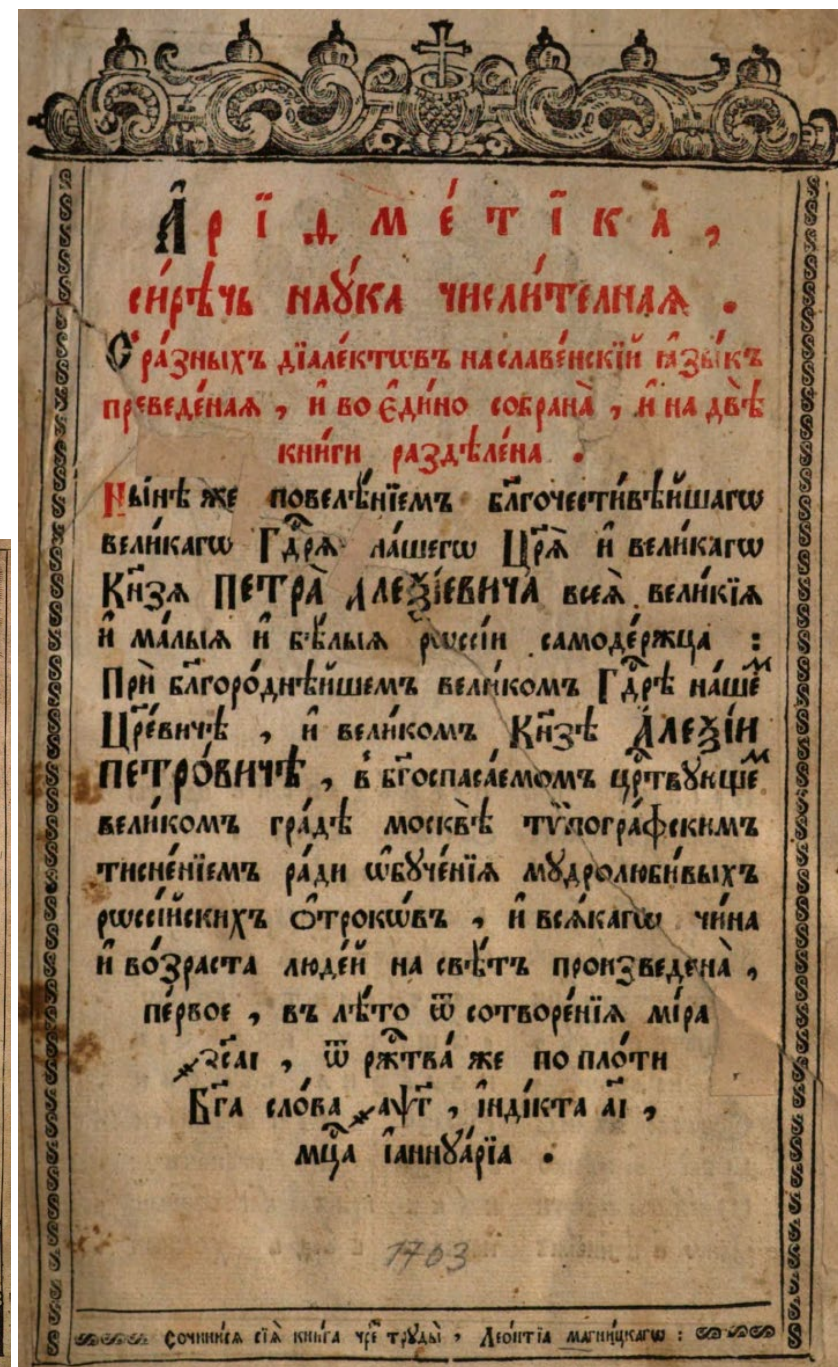 А҆рїѳме́тїка,
си́рѣчь наꙋ́ка числи́телнаѧ.
С̾ ра́зныхъ дїале́ктѡвъ на славе́нскїй ꙗ҆зы́къ
преведе́наѧ, и҆ во є҆ди́но собрана̀, и҆ на двѣ̀
кни́ги раздѣле́на.
Ны́нѣ же повелѣ́нїемъ бл҃гочести́вѣйшагѡ
вели́кагѡ Гдⷭ҇рѧ̀ на́шегѡ Цр҃ѧ̀ и҆ вели́кагѡ
Кн҃зѧ ПЕТРА̀ А҆ЛЕѮІ́ЕВИЧА всеѧ̀ вели́кїѧ
и҆ ма́лыѧ и҆ бѣ́лыѧ рѡссі́и самоде́ржца:
Прѝ бл҃горо́днѣйшемъ вели́комъ Гдⷭ҇рѣ̀ на́шеⷨ
Цр҃е́вичѣ, и҆ вели́комъ Кн҃зѣ А҆ЛЕѮІ́И
ПЕТРО́ВИЧѢ, в̾ бг҃оспаса́емомъ црⷭ҇твꙋ́ющеⷨ
вели́комъ гра́дѣ москвѣ̀ тѷпогра́фскимъ
тисне́нїемъ ра́ди ѡ҆бꙋче́нїѧ мꙋдролюби́выхъ
рѡссі́йскихъ ѻ҆́трокѡвъ, и҆ всѧ́кагѡ чи́на
и҆ во́зраста люде́й на свѣ́тъ произведена̀,
пе́рвое, въ лѣ́то ѿ сотворе́нїѧ мі́ра
҂зс҃аі, ѿ ржⷭ҇тва́ же по пло́ти
Бг҃а сло́ва ҂аѱ҃г, і҆нді́кта а҃і,
мцⷭ҇а і҆аннꙋа́рїа.
1703
Сочини́сѧ сїѧ̀ кни́га чреⷥ трꙋды̀, Лео́нтїа магни́цкагѡ: